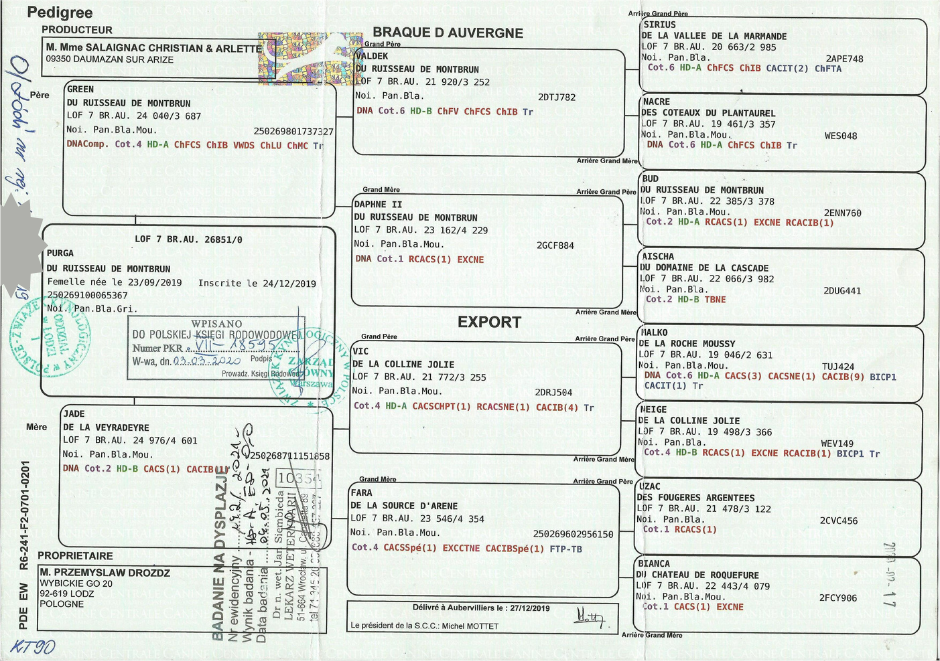 Pedigree
PRODUCTEUR
M. Mme SALAIGNAC CHRISTIAN & ARLETTE
09350 DAUMAZAN SUR ARIZE
BRAQUE D AUVERGNE
Père
GREEN
DU RUISSEAU DE MONTBRUN
LOF 7 BR.AU. 24 040/3 687
Noi. Pan.Bla.Mou. 250269801737327
DNAComp. Cot.4 HD-A ChFCS ChIB VWDS ChLU ChMC Tr
LOF 7 BR.AU. 26851/0
PURGA
DU RUISSEAU DE MONTBRUN
Femelle née le 23/09/2019 Inscrite le 24/12/2019
250269100065367
Noi. Pan.Bla.Gri.
WPISANO
DO POLSKIEJ KSIĘGI RODOWODOWEJ
Numer PKR VII-18595
Podpis
W-wa, dn. 03.03.2020
Prowadz. Księgi Rodowod
ZARZĄD
GŁÓWNY
Warszawa
Mère
JADE
DE LA VEYRADEYRE
LOF 7 BR.AU. 24 976/4 601
Noi. Pan.Bla.Mou. 250268711151858
DNA Cot.2 HD-B CACS(1) CACIB(1) Tr
PROPRIETAIRE
M. PRZEMYSLAW DROZDZ
WYBICKIE GO 20
92-619 LODZ
POLOGNE
PDE EW R6-241-F2-0701-0201
KT90
BADANIE NA DYSPLAZJĘ
Nr ewidencyjny
Wynik badania
Data badania
10354
Dr n. wet. Jan Siembieda
LEKARZ WETERYNARII
Grand Père
VALDEK
DU RUISSEAU DE MONTBRUN
LOF 7 BR.AU. 21 920/3 252
Noi. Pan.Bla. 2DTJ782
DNA Cot.6 HD-B ChFV ChFCS ChIB Tr
Grand Mère
DAPHNE II
DU RUISSEAU DE MONTBRUN
LOF 7 BR.AU. 23 162/4 229
Noi. Pan.Bla.Mou. 2GCFB84
DNA Cot.1 RCACS(1) EXCNE
EXPORT
Grand Père
VIC
DE LA COLLINE JOLIE
LOF 7 BR.AU. 21 772/3 255
Noi. Pan.Bla.Mou. 2DRJ504
Cot.4 HD-A CACSCHPT(1) RCACSNE(1) CACIB(4) Tr
Grand Mère
FARA
DE LA SOURCE D'ARENE
LOF 7 BR.AU. 23 546/4 354
Noi. Pan.Bla.Mou. 250269602956150
Cot.4 CACSSpé(1) EXCCTNE CACIBSpé(1) FTP-TB
Délivré à Aubervilliers le : 27/12/2019
Le président de la S.C.C.: Michel MOTTET
Arrière Grand Père
SIRIUS
DE LA VALLEE DE LA MARMANDE
LOF 7 BR.AU. 20 663/2 985
Noi. Pan.Bla. 2APE748
Cot.6 HD-A ChFCS ChIB CACIT(2) ChFTA
NACRE
DES COTEAUX DU PLANTAUREL
LOF 7 BR.AU. 19 461/3 357
Noi. Pan.Bla.Mou. WES048
DNA Cot.6 HD-A ChFCS ChIB Tr
Arrière Grand Mère
Arrière Grand Père
BUD
DU RUISSEAU DE MONTBRUN
LOF 7 BR.AU. 22 385/3 378
Noi. Pan.Bla.Mou. 2ENN760
Cot.2 HD-A RCACS(1) EXCNE RCACIB(1)
AISCHA
DU DOMAINE DE LA CASCADE
LOF 7 BR.AU. 22 066/3 982
Noi. Pan.Bla. 2DUG441
Cot.2 HD-B TBNE
Arrière Grand Mère
Arrière Grand Père
MALKO
DE LA ROCHE MOUSSY
LOF 7 BR.AU. 19 046/2 631
Noi. Pan.Bla.Mou. TUJ424
DNA Cot.6 HD-A CACS(3) CACSNE(1) CACIB(9) BICP1
CACIT(1) Tr
NEIGE
DE LA COLLINE JOLIE
LOF 7 BR.AU. 19 498/3 366
Noi. Pan.Bla. WEV149
Cot.4 HD-B RCACS(1) EXCNE RCACIB(1) BICP1 Tr
Arrière Grand Mère
Arrière Grand Père
UZAC
DES FOUGERES ARGENTEES
LOF 7 BR.AU. 21 478/3 122
Noi. Pan.Bla. 2CVC456
Cot.1 RCACS(1)
BIANCA
DU CHATEAU DE ROQUEFURE
LOF 7 BR.AU. 22 443/4 079
Noi. Pan.Bla.Mou. 2FCY906
Cot.1 CACS(1) EXCNE
Arrière Grand Mère